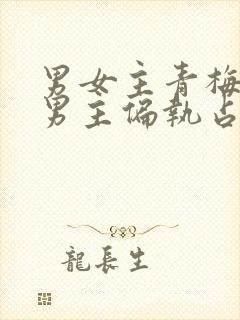 男女主青梅
男主偏執占
龍長生